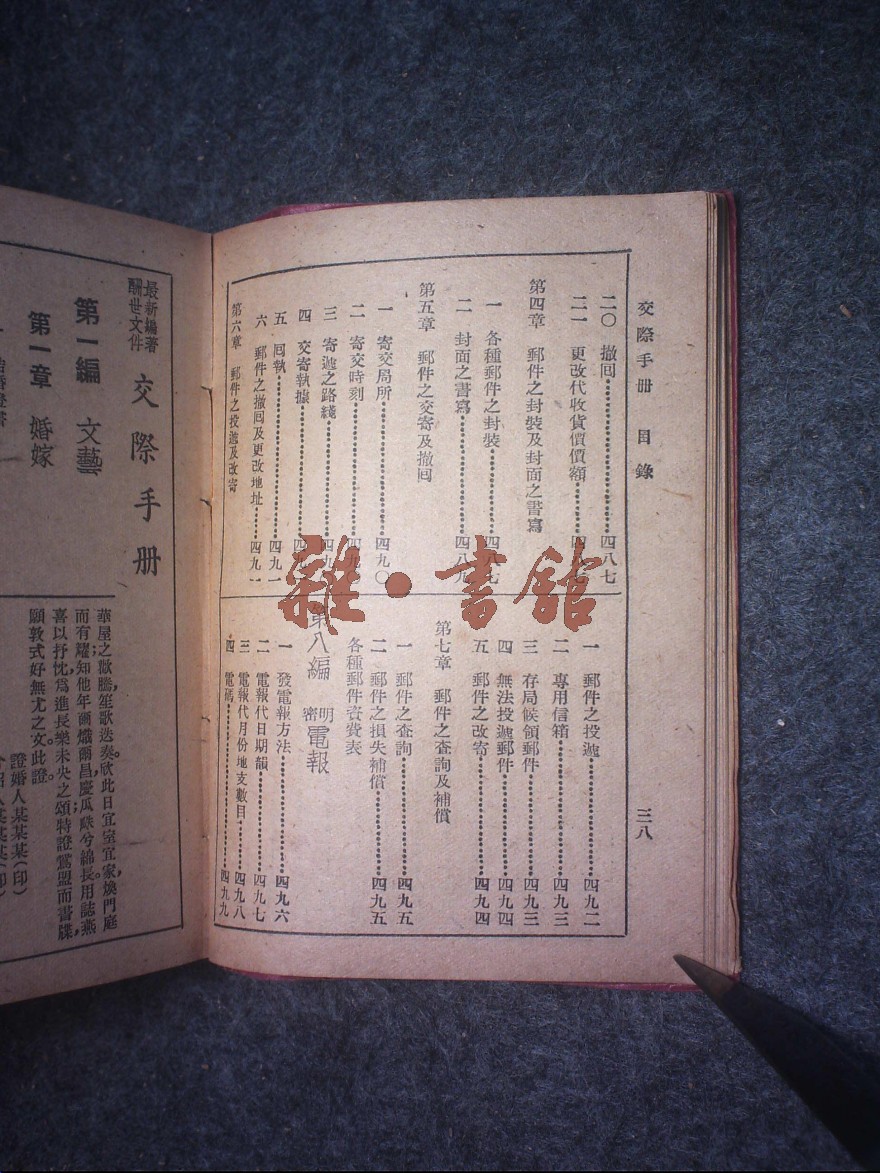 交際手册 目錄 三八
二〇 撤囘 四八七
二一 更改代收貨價價額 四八七
第四章 郵件之封裝及封面之書寫
一 各種郵件之封裝 四八七
二 封面之書寫 四八九
第五章 郵件之交寄及撤囘
一 寄交局所 四九〇
二 寄交時刻
三 寄遞之路綫
四 交寄執據
五 囘執 四九一
六 郵件之撤囘及更改地址 四九一
第六章 郵件之投遞及改寄
一 郵件之投遞 四九二
二 專用信箱 四九三
三 存局候領郵件 四九三
四 無法投遞郵件 四九四
五 郵件之改寄 四九四
第七章 郵件之查詢及補償
一 郵件之查詢 四九五
二 郵件之損失補償 四九五
各種郵件資費表
第八編 明密電報
一 發電報方法 四九六
二 電報代日期韻 四九七
三 電報代月份地支數目 四九八
四 電碼 四九九
雜·書館
最新編著
酬世文件
交際手册
第一編 文藝
第一章 婚嫁
一 結婚證書
華屋之歡騰,笙歌迭奏欣此日宜室宜家煥門庭
而有耀知他年爾熾爾昌慶瓜瓞兮綿長用誌燕
喜以抒忱爲進長樂未央之頌特證鴛盟而書牒,
願敦式好無尤之文此證。
證婚人某某某(印)
介紹人某某某(印)